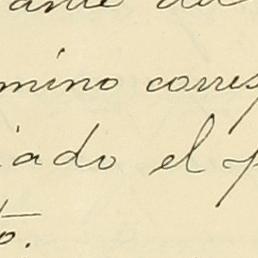 ante del
mino corresp
iado el p
to.